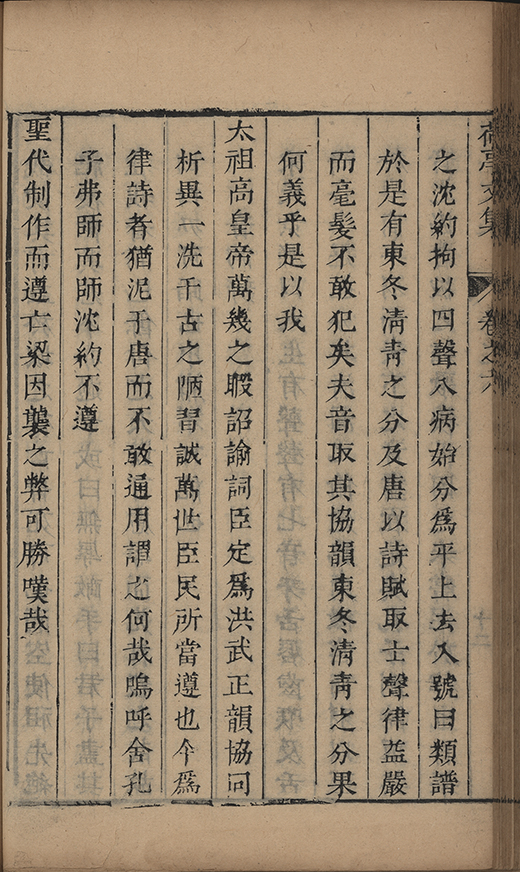 文集
卷之六
之沈約拘以四聲八病始分爲平上去入號曰類譜
於是有東冬清青之分及唐以詩賦取士聲律益嚴
而毫髮不敢犯矣夫音取其協韻東冬清青之分果
何義乎是以我
太祖高皇帝萬幾之暇詔諭詞臣定爲洪武正韻協同
析異一洗千古之陋習誠萬世臣民所當遵也今爲
律詩者猶泥于唐而不敢通用謂之何哉嗚呼舍孔
子弗師而師沈約不遵
聖代制作而遵亡梁因襲之弊可勝嘆哉